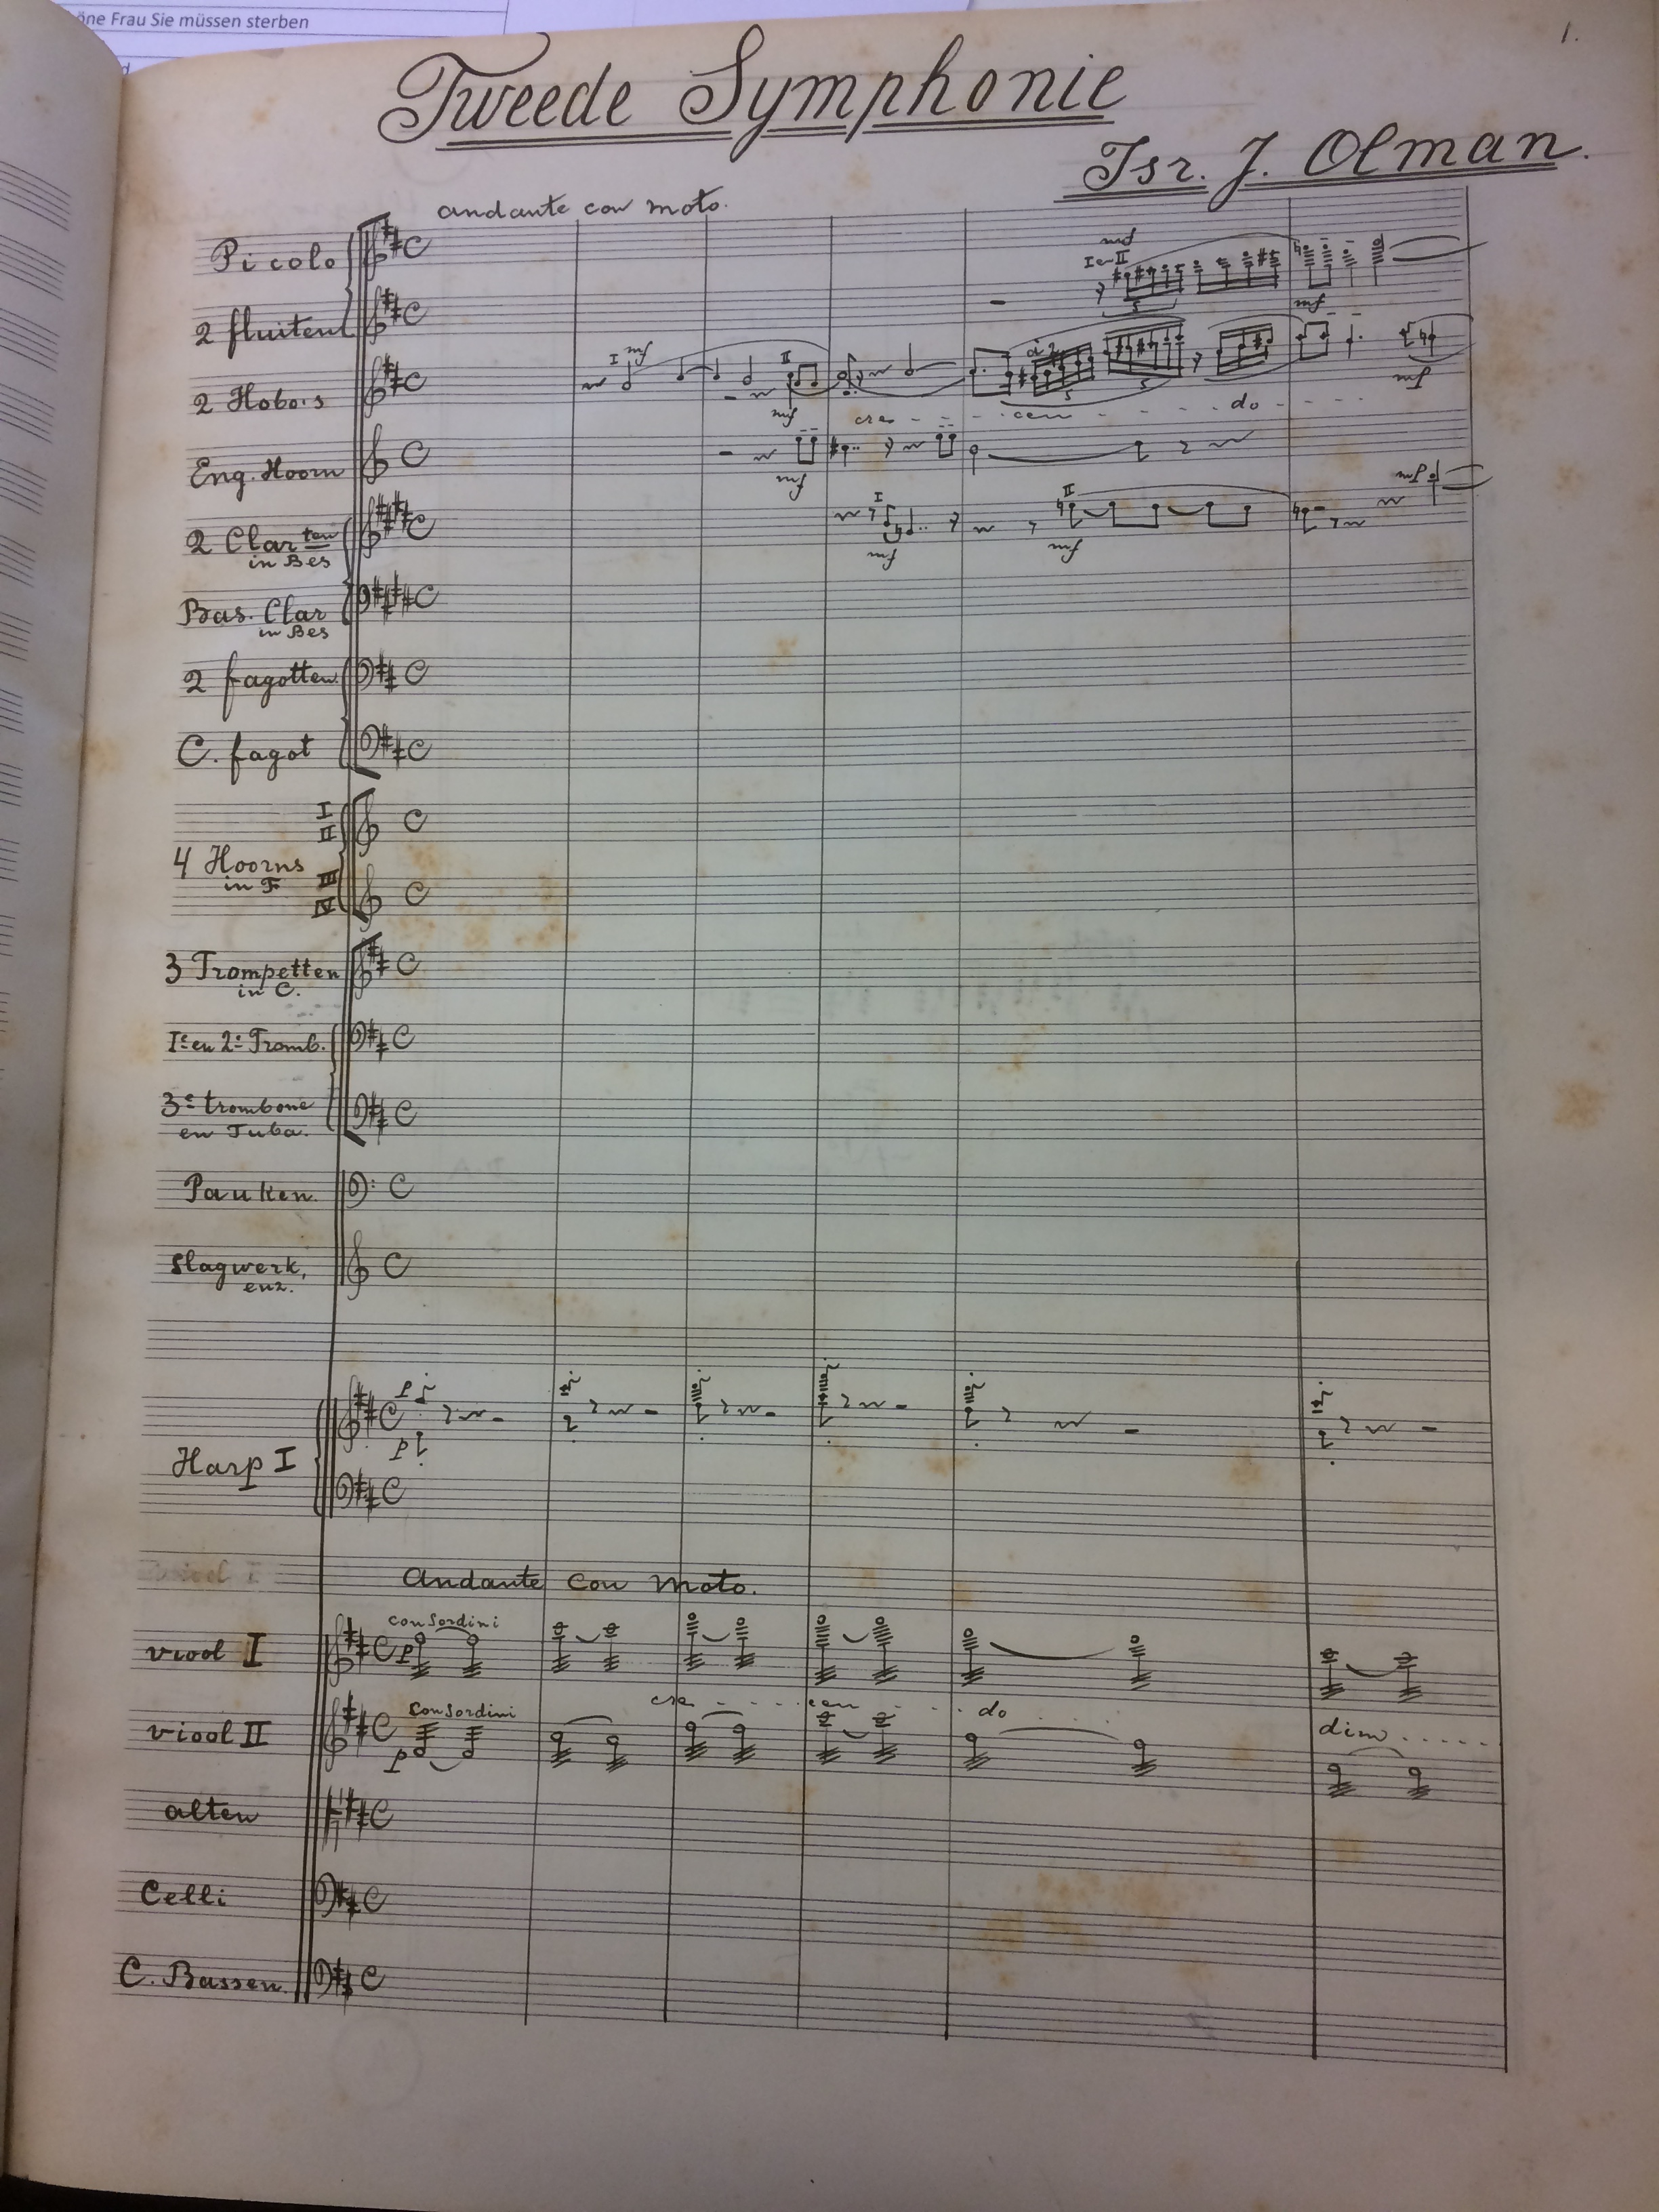 öne Frau Sie müssen sterben
d
1.
Tweede Symphonie
Isr. J. Olman.
andante con moto.
Picolo
2 fluiten
md
Ie-II
5
mf
2 Hobo's
I mf
II
mf
a 2
5
5
mf
cres - - - cen - - - do - - - -
Eng. Hoorn
mf
2 Clar ten
in Bes
I
mf
II
mf
mf
Bas. Clar
in Bes
2 fagotten
C. fagot
I
II
4 Hoorns
in F
III
IV
3 Trompetten
in C.
Ie en 2e Tromb.
3e trombone
en Tuba.
Pauken.
Slagwerk,
enz.
Harp I
p
p
viool I
Andante con moto.
viool I
con Sordini
p
cre - - - cen - - - do . . . .
viool II
con Sordini
p
dim . . . . .
alten
Celli
C. Bassen.